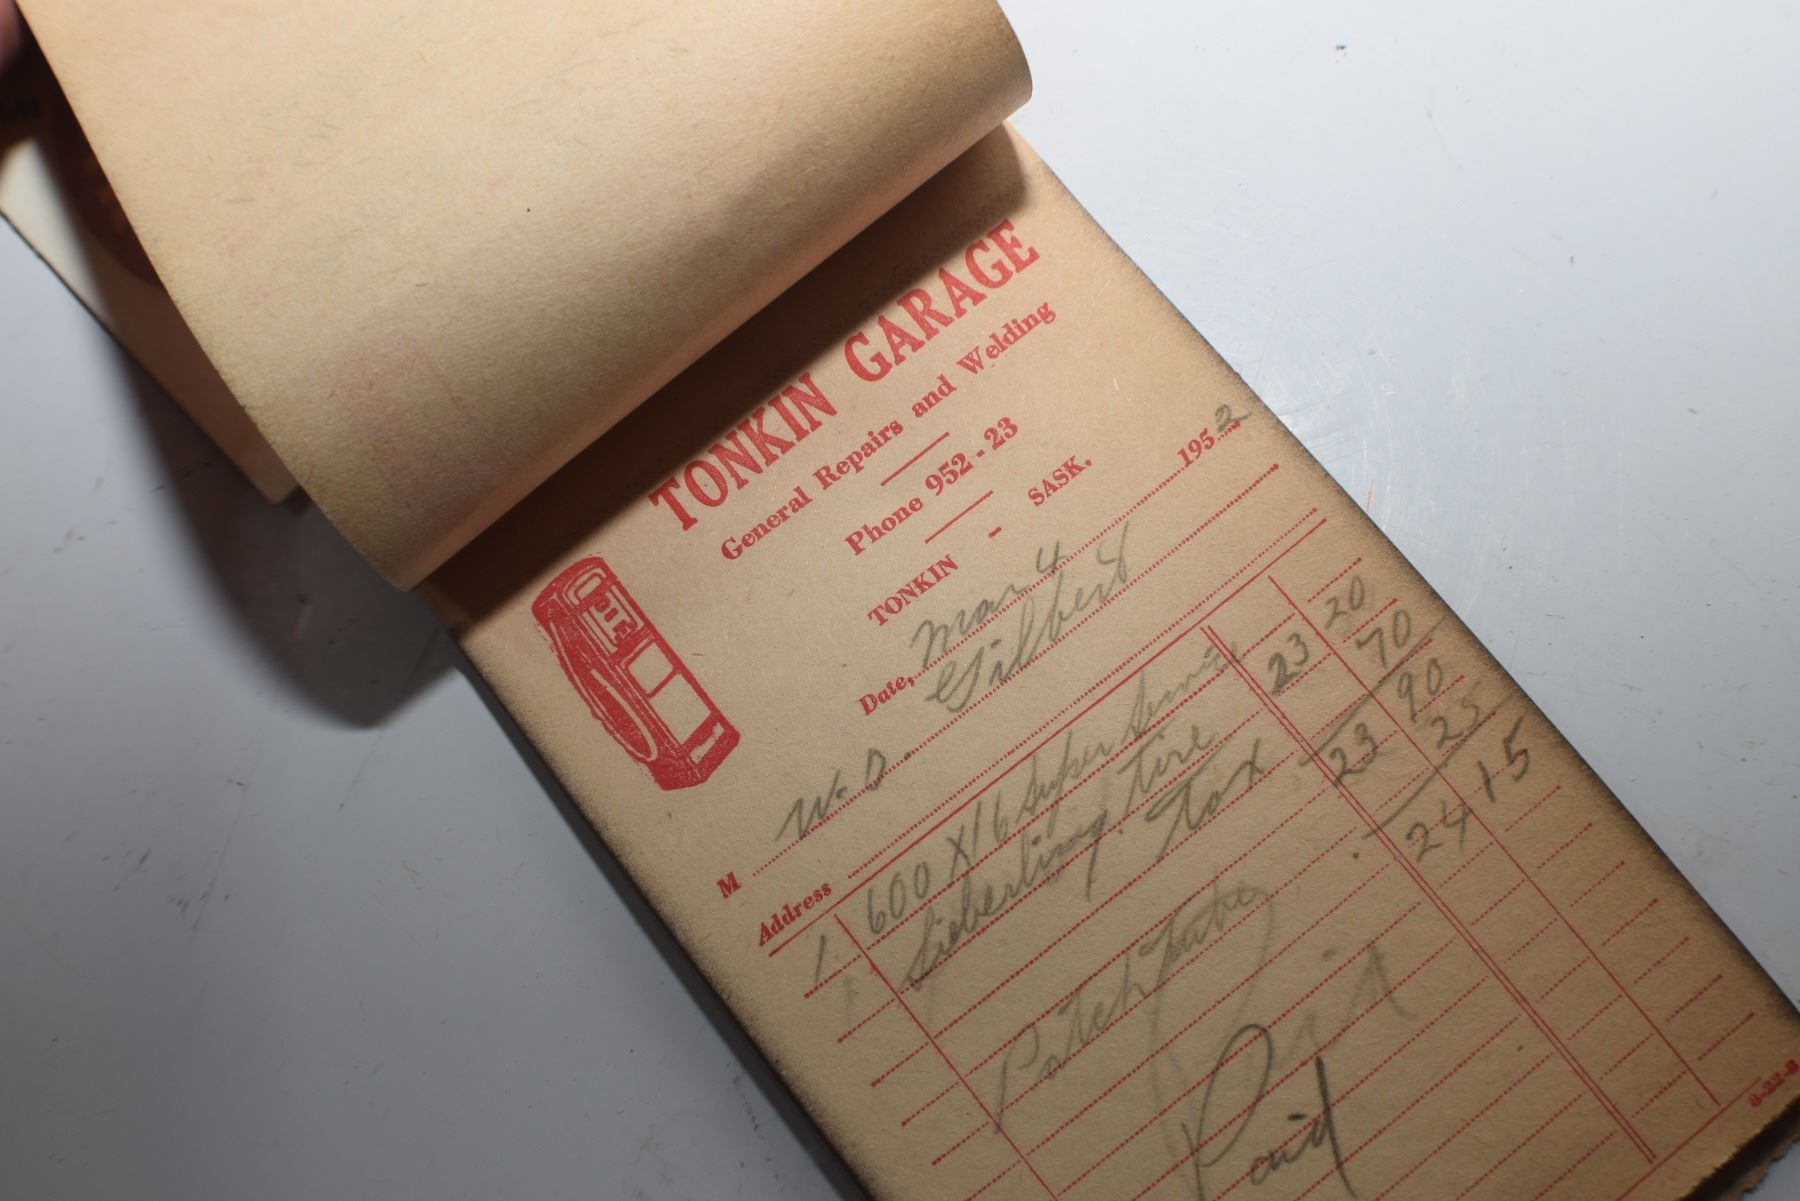 TONKIN GARAGE
General Repairs and Welding
Phone 952-23
TONKIN - SASK.
Date, Mar 4 1952
M W. D. Gilbert
Address
1 600 X 16 Super Service 23 20
Sieberling Tire 70
Tax 23 90
Patch Tube 25
24 15
Paid
Paid
8-22-B